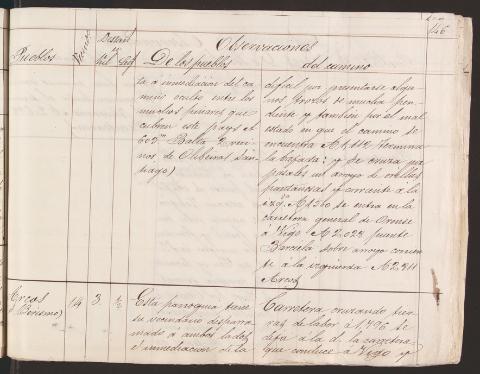 146
Observaciones
Pueblos
De los pueblos
del camino
ta á inmediacion del ca
mino oculto entre los
muchos pinares que
cubren este pays A
603 Balta 2 veci
nos de Olibeiros San
tiago)
dificil por presentarse algu
nos trozos de mucha pen
diente y tambien por el mal
estado en que el camino se
encuentra A 1,112 termina
la bajada: y se cruza
un arroyo de orillas
pantanosas y corriente á la
izq.ª A 1260 se entra en la
carretera general de Orense
á Vigo A 2,023 puente
Barcela sobre arroyo corrien
te á la izquierda A 2,311
Arcos
Arcos
14
3
½
Esta parroquia tiene
su vecindario desparra
mado á ambos lados
é inmediacion de la
Carretera cruzando tier
ras de labor á 1,796 se
á la d. la carretera
que conduce á Vigo y